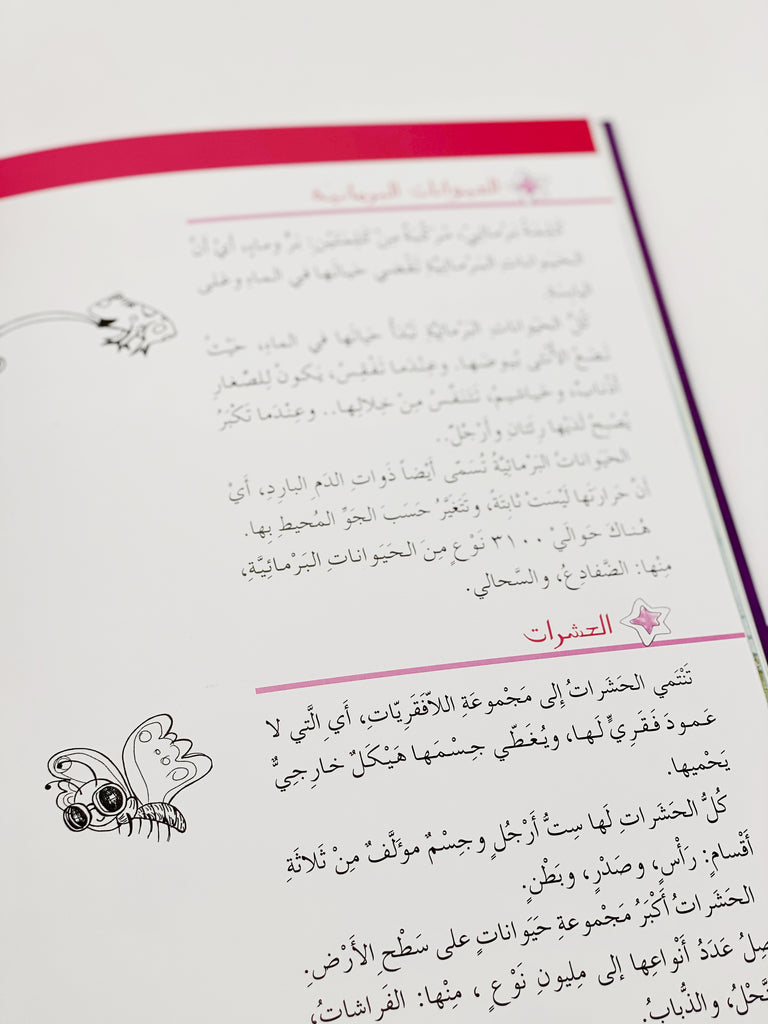 الحيوانات البرمائية
كَلِمَةُ بَرْمائِيّ، مُرَكَّبَةٌ مِنْ كَلِمَتَيْنِ: بَرّ وماء، أَيْ أَنَّ
الحَيَوانات البَرْمائِيَّة تَقْضي حَياتَها في الماءِ وعَلى
اليابِسَة.
كُلُّ الحَيَوانات البَرْمائِيَّة تَبْدَأُ حَياتَها في الماءِ، حَيْثُ
تَضَعُ الأُنْثى بُيوضَها. وعِنْدَما تَفْقِسُ، يَكونُ لِلصِّغارِ
أَذْنابٌ، وخَياشيمُ، تَتَنَفَّسُ مِنْ خِلالِها.. وعِنْدَما تَكْبَرُ
يُصْبِحُ لَدَيْها رِئَتانِ وأَرْجُلٌ..
الحَيَواناتُ البَرْمائِيَّةُ تُسَمّى أَيْضاً ذَوات الدَم البارِدِ، أَيْ
أَنَّ حَرارَتَها لَيْسَتْ ثابِتَةً، وتَتَغَيَّرُ حَسَبَ الجَوِّ المُحيطِ بِها.
هُناكَ حَوالَيْ ٣١٠٠ نَوْعٍ مِنَ الحَيَوانات البَرْمائِيَّةِ،
مِنْها: الضَّفادِعُ، والسَّحالي.
الحشرات
تَنْتَمي الحَشَراتُ إلى مَجْموعَةِ اللاَّفَقَرِيّاتِ، أَيِ الَّتي لا
عَمودَ فَقَرِيٍّ لَها، ويُغَطّي جِسْمَها هَيْكَلٌ خارِجِيٌّ
يَحْميها.
كُلُّ الحَشَراتِ لَها سِتُّ أَرْجُلٍ وجِسْمٌ مؤَلَّفٌ مِنْ ثَلاثَةِ
أَقْسامٍ: رَأْسٍ، وصَدْرٍ، وبَطْنٍ.
الحَشَراتُ أَكْبَرُ مَجْموعةِ حَيَواناتٍ على سَطْحِ الأَرْضِ.
عَدَدُ أَنْواعِها إلى مِليونِ نَوْعٍ، مِنْها: الفَراشاتُ،
والذُّبابُ.